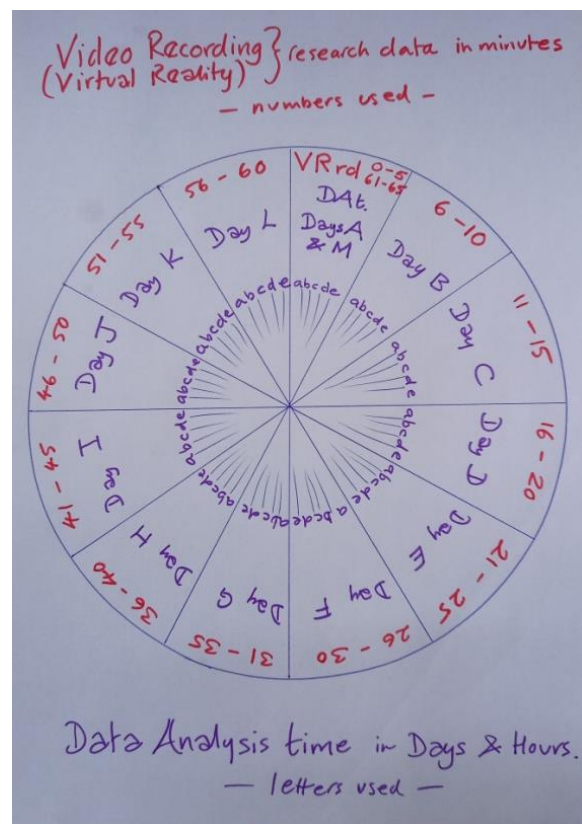 Video Recording } research data in minutes
(Virtual Reality)
- numbers used -
VRrd 0-5
61-65
DAt.
Days A
& M
abcde
6-10
Day B
abcde
11-15
Day C
abcde
16-20
Day D
abcde
21-25
Day E
abcde
26-30
Day F
abcde
31-35
Day G
abcde
36-40
Day H
abcde
41-45
Day I
abcde
46-50
Day J
abcde
51-55
Day K
abcde
56-60
Day L
abcde
Data Analysis time in Days & Hours.
- letters used -